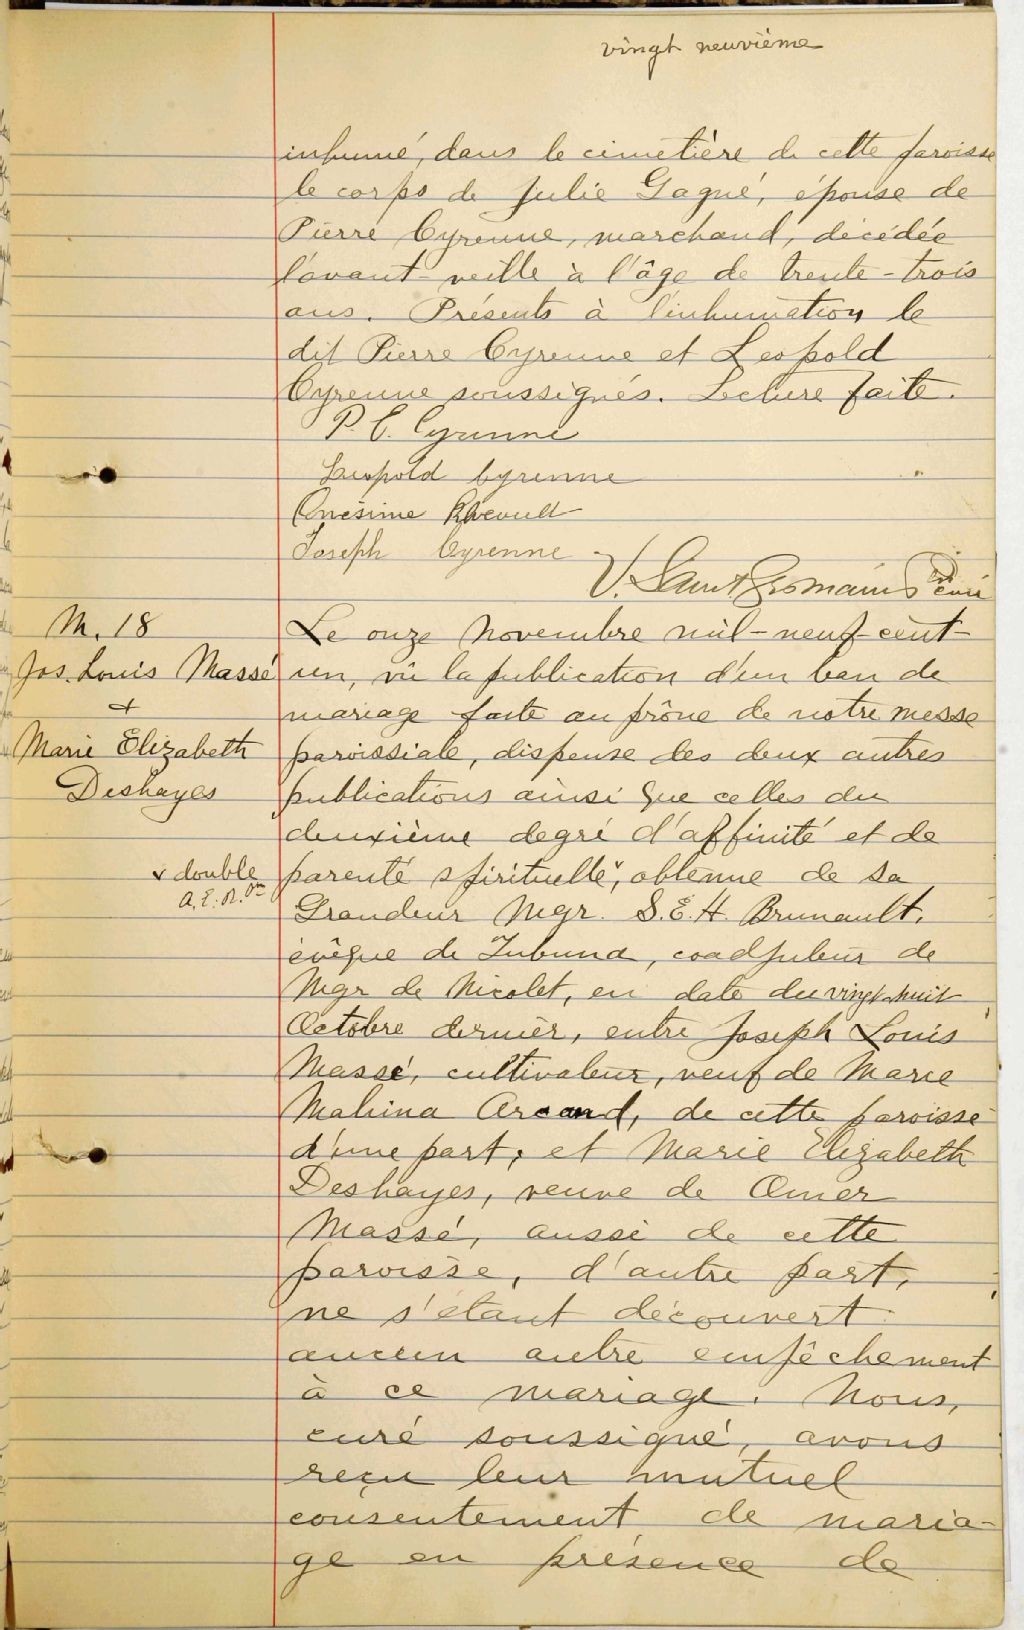 vingt neuvième
inhumé, dans le cimetière de cette paroisse
le corps de Julie Gagné, épouse de
Pierre Cyrenne, marchand, décédée
l'avant-veille à l'âge de trente-trois
ans. Présents à l'inhumation le
dit Pierre Cyrenne et Leopold
Cyrenne soussignés. Lecture faite.
P. C. Cyrenne
Leopold Cyrenne
Onésime
Joseph Cyrenne
V. Saint Germain Ptre curé
M. 18
Jos. Louis Massé
+
Marie Elizabeth
Deshayes
Le onze Novembre mil-neuf-cent-
un, vû la publication d'un ban de
mariage faite au prône de notre messe
paroissiale, dispense des deux autres
publications ainsi que celles du
deuxième degré d'affinité et de
v double
parenté spirituelle v, obtenue de Sa
Grandeur Mgr. S.E.H. Brunault,
évêque de Tubuna, coadjuteur de
Mgr de Nicolet, en date du vingt-huit
Octobre dernier, entre Joseph Louis
Massé, cultivateur, veuf de Marie
Malvina Arcand, de cette paroisse
d'une part, et Marie Elizabeth
Deshayes, veuve de Omer
Massé, aussi de cette
paroisse, d'autre part,
ne s'étant découvert
aucun autre empêchement
à ce mariage. Nous,
curé soussigné, avons
reçu leur mutuel
consentement de maria-
ge en présence de